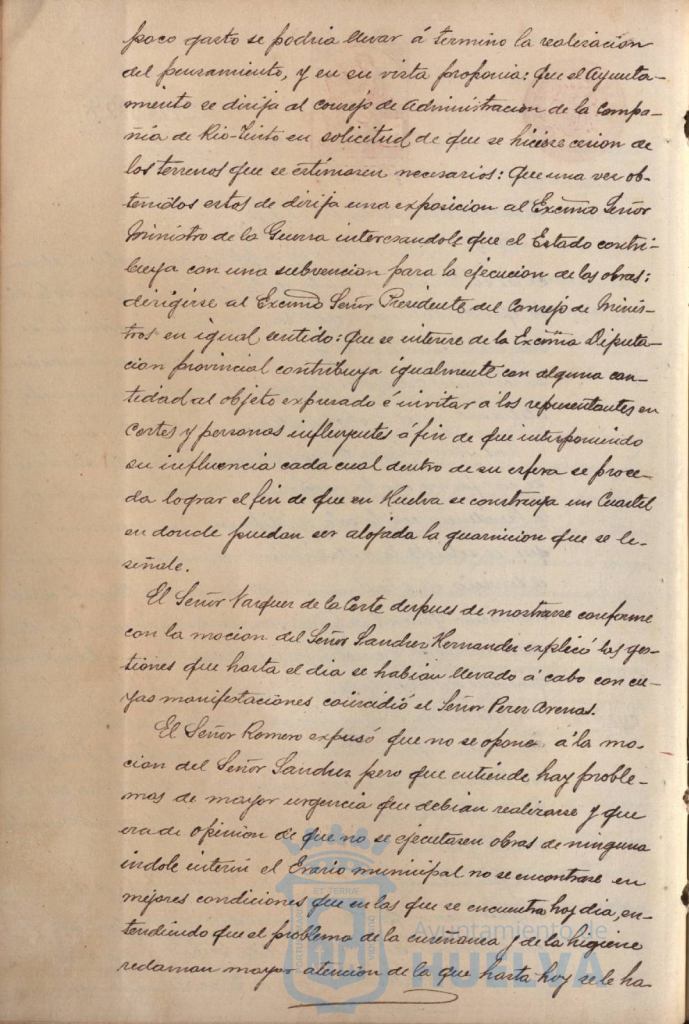 poco gasto se podria llevar á termino la realizacion
del pensamiento, y en su vista proponia: Que el Ayunta-
miento se dirija al consejo de Administracion de la Compa-
ñia de Rio-Tinto en solicitud de que se hiciese cesion de
los terrenos que se estimasen necesarios: Que una vez ob-
tenidos estos de dirija una exposicion al Excmo Señor
Ministro de la Guerra interesandole que el Estado contri-
buya con una subvencion para la ejecucion de las obras:
dirigirse al Excmo Señor Presidente del Consejo de Minis-
tros en igual sentido: Que se interese de la Excma Diputa-
cion provincial contribuya igualmente con alguna can-
tidad al objeto expresado é invitar á los representantes en
Cortes y personas influyentes á fin de que interponiendo
su influencia cada cual dentro de su esfera se proce-
da lograr el fin de que en Huelva se construya un Cuartel
en donde puedan ser alojada la guarnicion que se le
señale.
El Señor Vazquez de la Corte despues de mostrarse conforme
con la mocion del Señor Sanchez Hernandez explicó las ges-
tiones que hasta el dia se habian llevado á cabo con cu-
yas manifestaciones coincidió el Señor Perez Arenas.
El Señor Romero expusó que no se opone á la mo-
cion del Señor Sanchez pero que entiende hay proble-
mas de mayor urgencia que debian realizarse y que
era de opinion de que no se ejecutasen obras de ninguna
indole interin el Erario municipal no se encontrase en
mejores condiciones que en las que se encuentra hoy dia, en-
tendiendo que el problema de la enseñanza y de la higiene
reclaman mayor atencion de la que hasta hoy se le ha
Ayuntamiento de
HUELVA